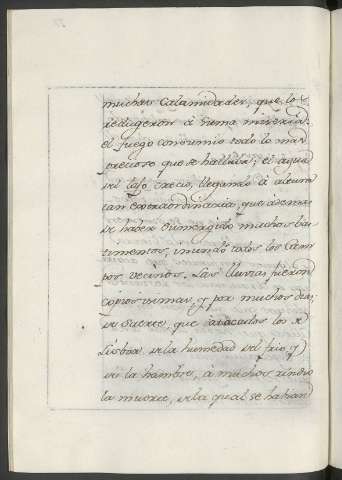 muchas Calamidades, que los
redugeron à suma miseria:
el fuego consumio todo lo mas
precioso que se hallaba; el agua
del tajo crecio, llegando à altura
tan extraordinaria, que ademas
de haber sumergido muchos bas
timentos, inundó todos los Cam
pos vecinos. Las lluvias fueron
copiosisimas, y por muchos dias,
de suerte, que atacados los de
Lisboa de la humedad del frio, y
de la hambre, à muchos rindio
la muerte, de la qual se habian